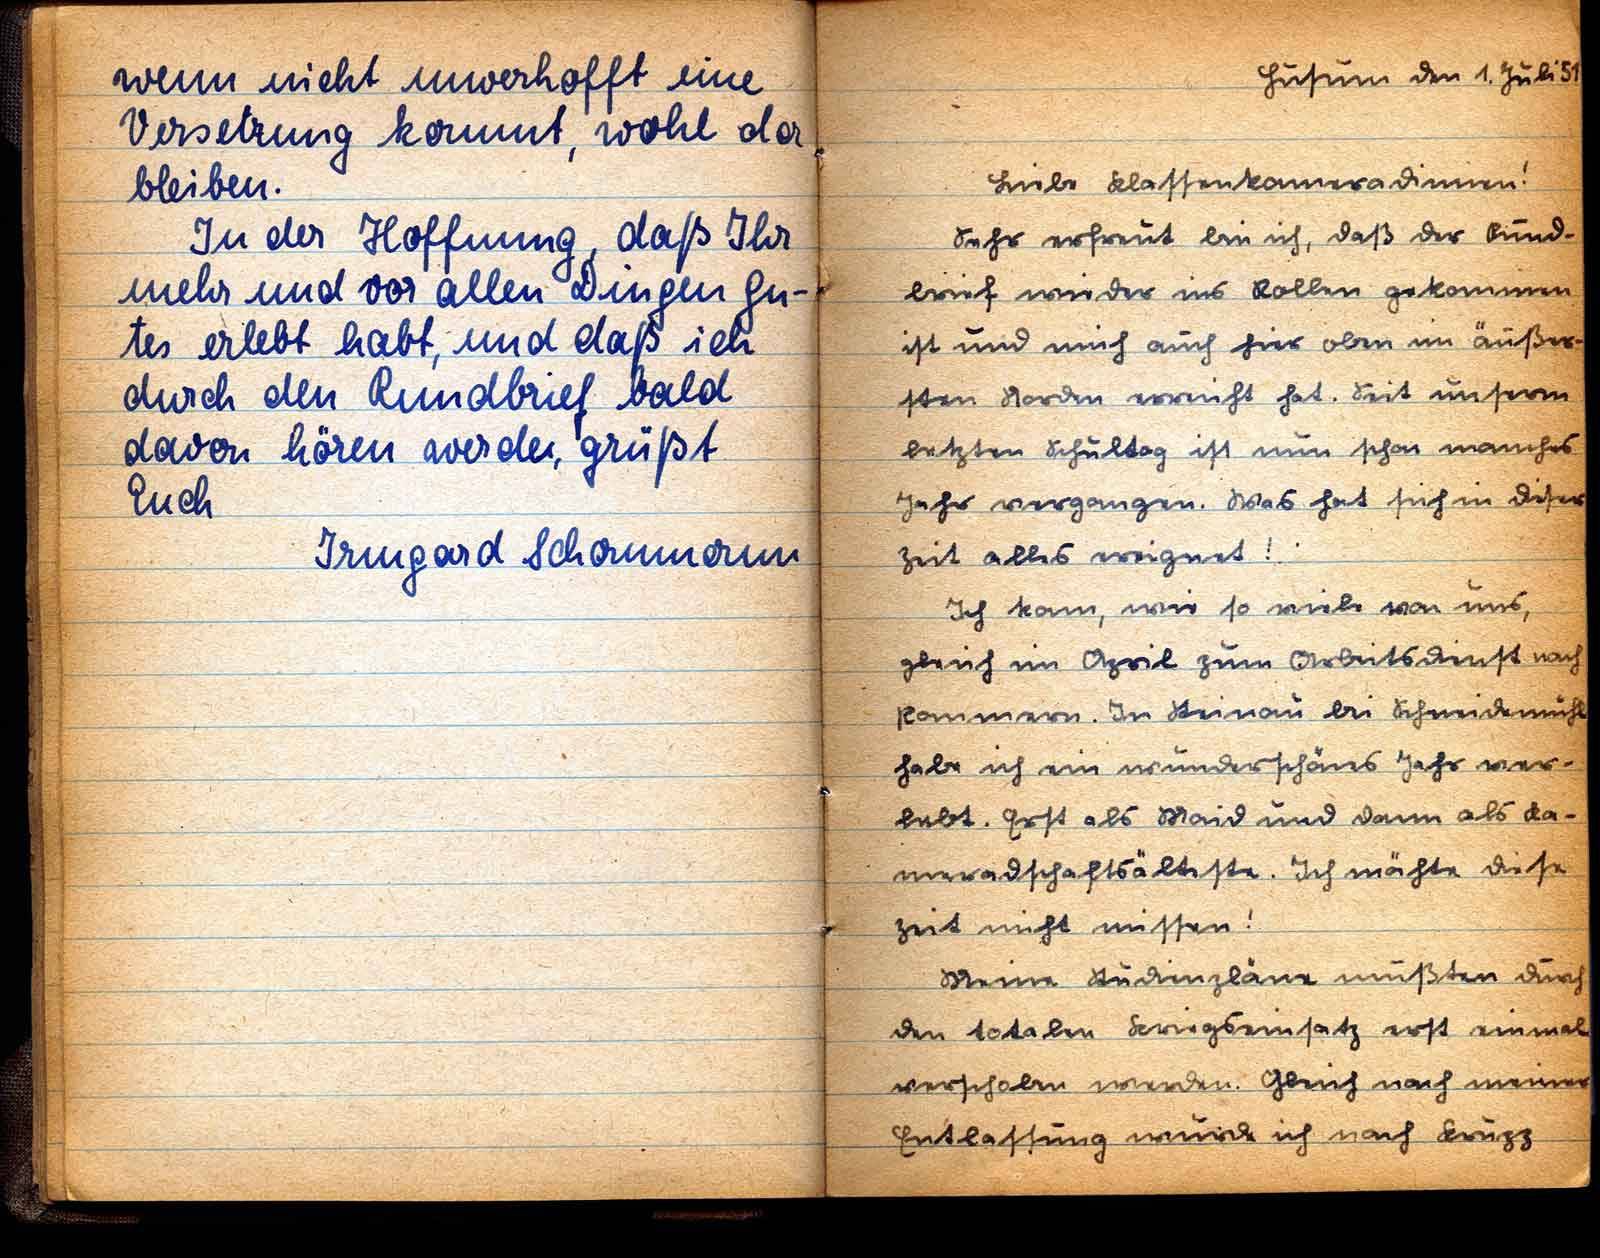 wenn nicht unverhofft eine
Versetzung kommt, wohl da
bleiben.
In der Hoffnung, daß Ihr
mehr und vor allen Dingen Gu-
tes erlebt habt, und daß ich
durch den Rundbrief bald
davon hören werde, grüßt
Euch
Irmgard
Husum den 1. Juli 51
Liebe Klassenkameradinnen!
Sehr erfreut bin ich, daß der Rund-
brief wieder ins Rollen gekommen
ist und mich auch hier oben im äußer-
sten Norden erreicht hat. Seit unserm
letzten Schultag ist nun schon manches
Jahr vergangen. Was hat sich in dieser
Zeit alles ereignet!
Ich kam, wie so viele von uns,
gleich im April zum Arbeitsdienst nach
Pommern. In Steinau bei Schneidemühl
habe ich ein wunderschönes Jahr ver-
lebt. Erst als Maid und dann als Ka-
meradschaftsälteste. Ich möchte diese
Zeit nicht missen!
Meine Studienpläne mußten durch
den totalen Kriegseinsatz erst einmal
verschoben werden. Gleich nach meiner
Entlassung wurde ich nach